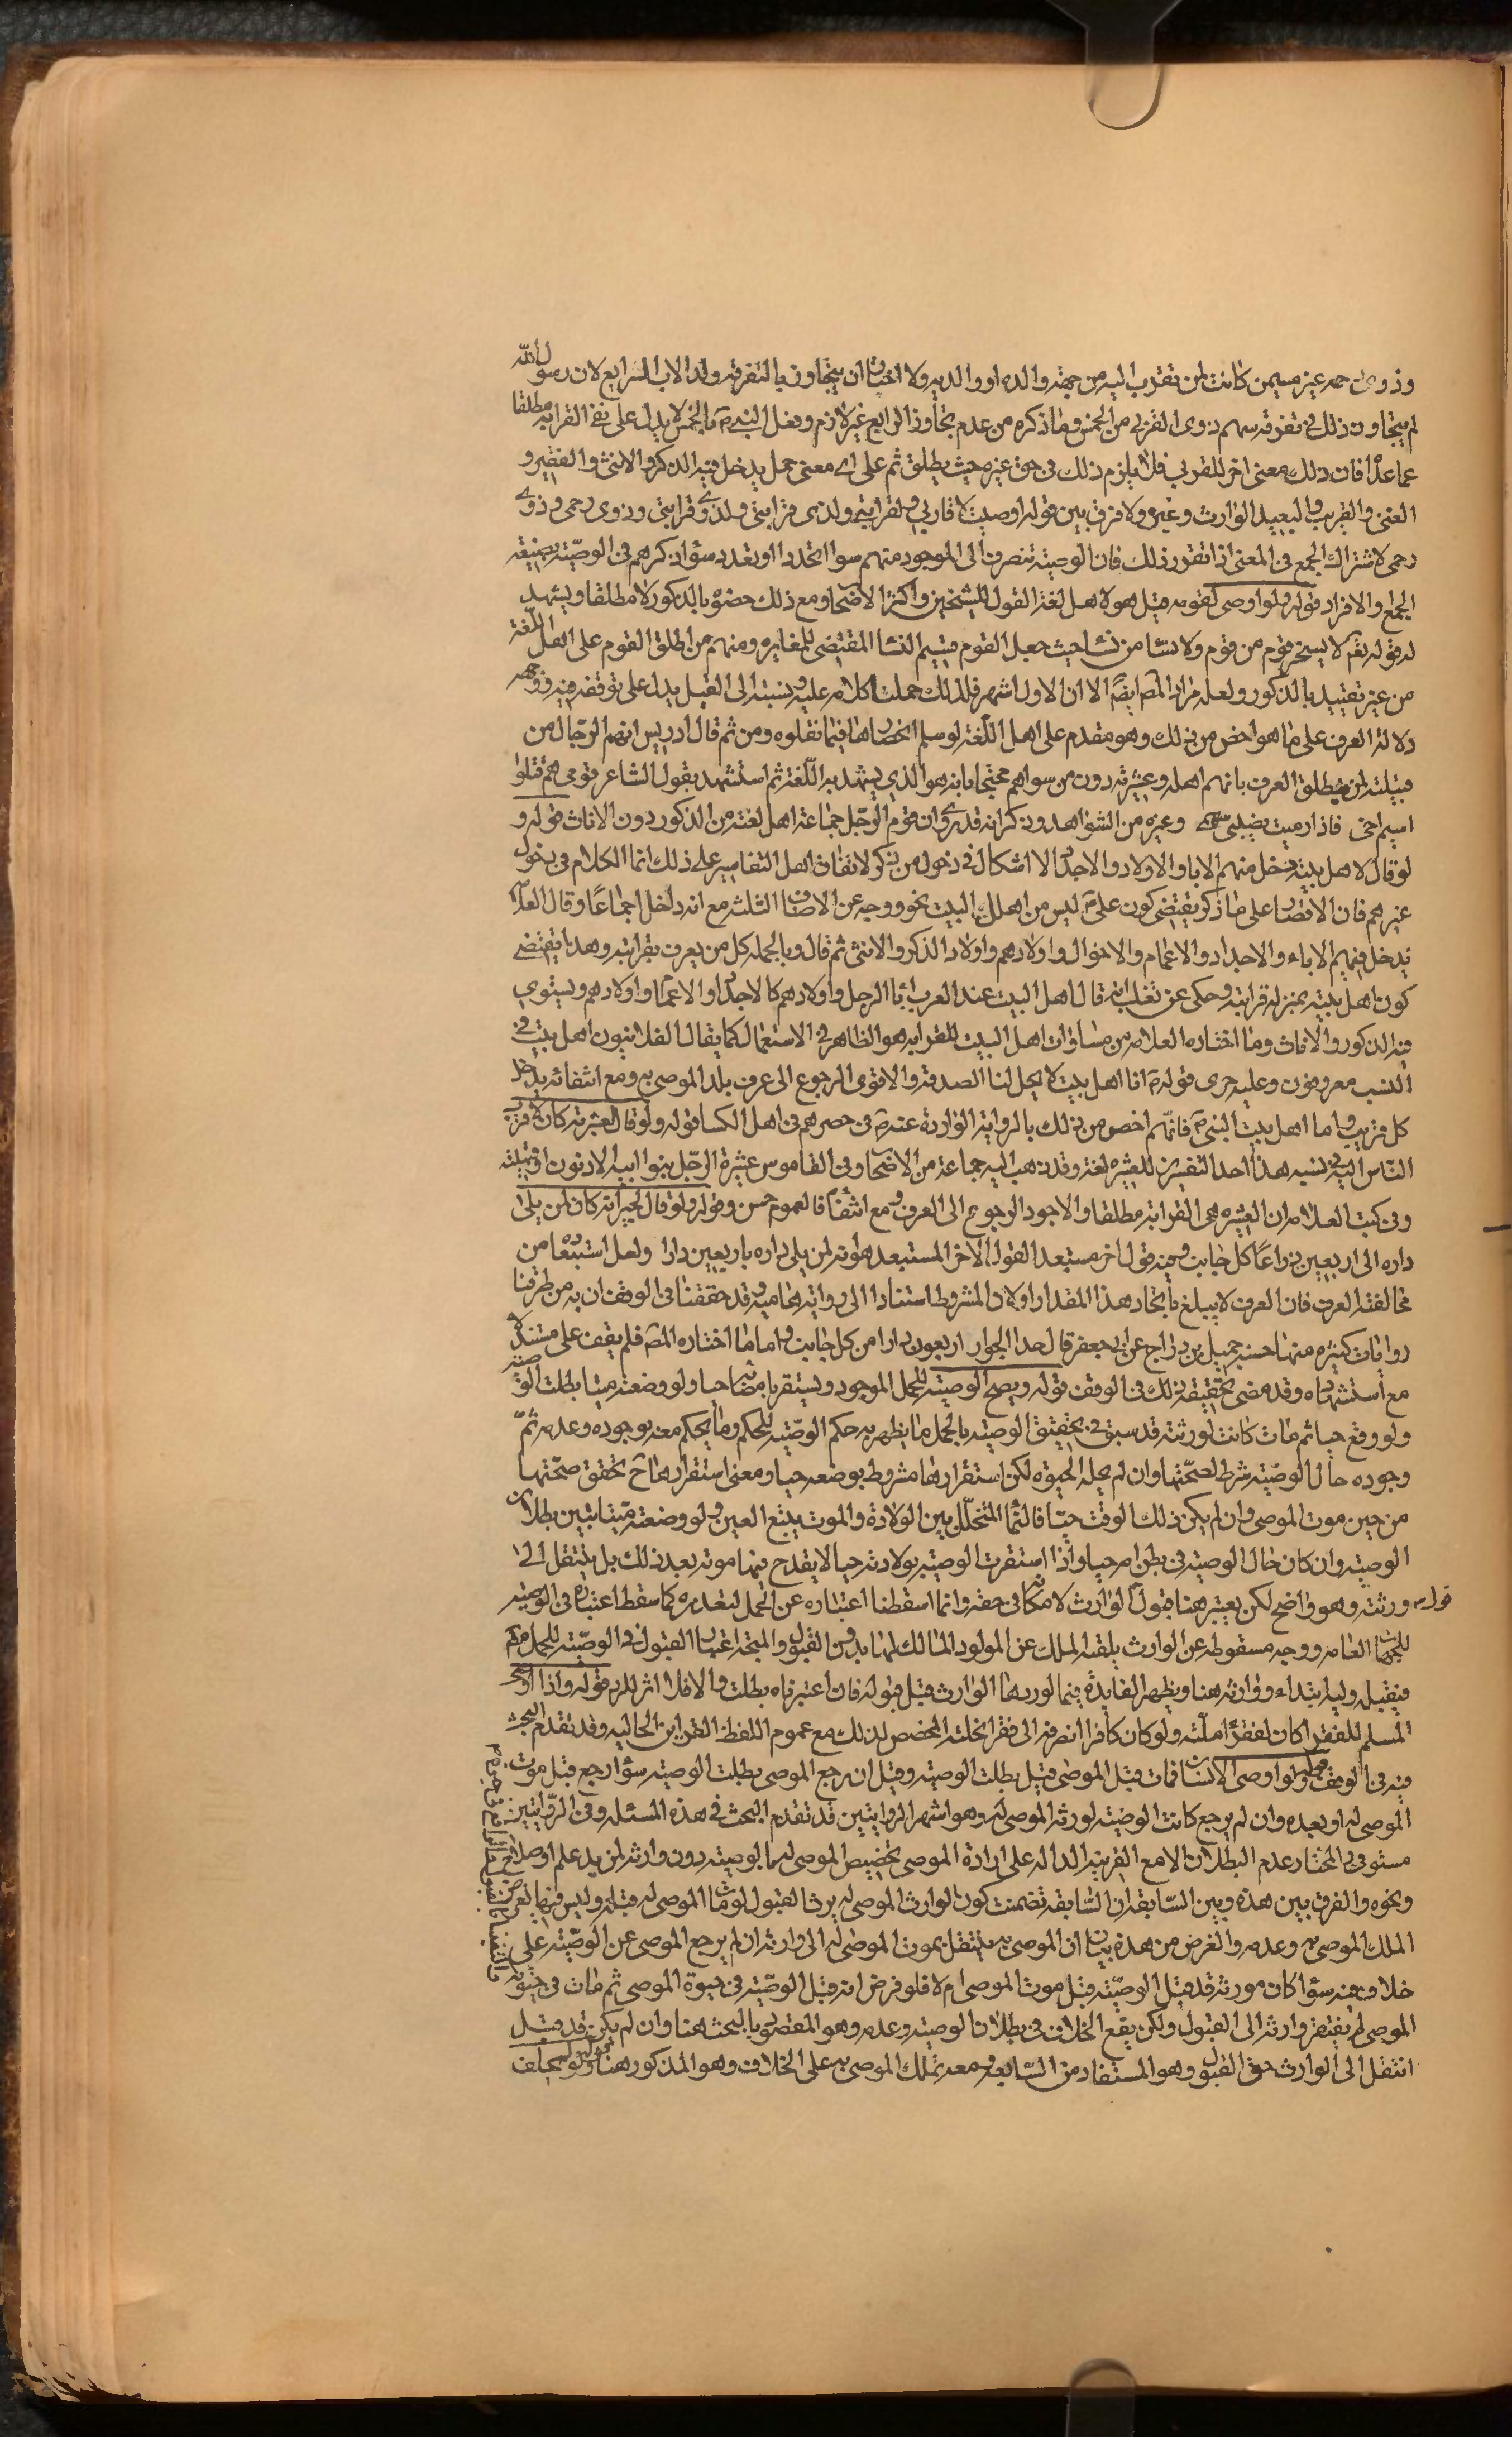 وذوى رحمه غيره ممن كانت لمن تقرب اليه من جهة والده او والديه ولا اختار ان يتجاوز بالتفرقة ولد الاب الرابع لان رسول الله
لم يتجاوز ذلك فى تفرقة سهم ذوى القربى من الخمس وما ذكره من عدم تجاوز الرابع غير لازم وفعل النبى ص بالخمس لا يدل على نفى القرابة مطلقا
عما عداه فان ذلك معنى اخر للقربى فلا يلزم ذلك فى حق غيره حيث يطلق ثم على اى معنى حمل يدخل فيه الذكر والانثى والفقير و
الغنى والقريب والبعيد الوارث وغيره ولا فرق بين قوله اوصيت لاقاربى ولقرابتى ولذى قرابتى ولذوى قرابتى وذوى رحمى وذوى
رحمى لاشتراك الجمع فى المعنى اذا تقرر ذلك فان الوصية تنصرف الى الموجود منهم سوا اتحد او تعدد سوا ذكرهم فى الوصية بصيغة
الجمع او الافراد قوله ولو اوصى لقومه قيل هو لاهل لغته القول للشيخين واكثر الاصحاب ومع ذلك خصوه بالذكور لا مطلقا ويشهد
له قوله تعم لا يسخر قوم من قوم ولا نسا من نسا حيث جعل القوم قسيم النسا المقتضى للمغايرة ومنهم من اطلق القوم على اهل اللغة
من غير تقييد بالذكور ولعله مراد المص ايضا الا ان الاول اشهر فلذلك حملت كلامه عليه ونسبته الى القيل يدل على توقفه فيه ووجهه
دلالة العرف على ما هو اخص من ذلك وهو مقدم على اهل اللغة لو سلم انحصارها فيما نقلوه ومن ثم قال ادريس انهم الرجال من
قبيلته لمن يطلق العرف بانهم اهله وعشيرته دون من سواهم محتجا بانه هو الذى يشهد به اللغة ثم استشهد بقول الشاعر قومى هم قتلوا
اميم اخى فاذا رميت يصيبنى سهمى وغيره من الشواهد وذكر انه قد روى ان قوم الرجل جماعة اهل لغته من الذكور دون الاناث قوله و
لو قال لاهل بيته دخل منهم الابا والاولاد والاجداد لا اشكال فى دخول من ذكر لاتفاق اهل التفاسير على ذلك انما الكلام فى دخول
غيرهم فان الاقتصار على ما ذكر يقتضى كون على ع ليس من اهل البيت لخروجه عن الاصناف الثلثة مع انه داخل اجماعا وقال العلامة
يدخل فيهم الاباء والاجداد والاعمام والاخوال واولادهم واولاد الذكر والانثى ثم قال وبالجملة كل من يعرف بقرابته وهذا يقتضى
كون اهل بيته بمنزلة قرابته وحكى عن ثعلب انه قال اهل البيت عند العرب ابا الرجل واولادهم كالاجداد والاعمام واولادهم ويستوى
فيه الذكور والاناث وما اختاره العلامة من مساوات اهل البيت للقرابه هو الظاهر فى الاستعمال كما يقال الفلانيون اهل بيت فى
النسب معروفون وعليه جرى قوله ص انا اهل بيت لا يحل لنا الصدقة والاقوى الرجوع الى عرف بلد الموصى به ومع انتفائه يدخل
كل قريب واما اهل بيت النبى ص فانهم اخص من ذلك بالرواية الواردة عنه ص فى حصرهم فى اهل الكسا قوله ولو قال لعشيرته كان لاقرب
الناس اليه فى نسبه هذا احد التفسيرين للعشيره لغة وقد ذهب اليه جماعة من الاصحاب وفى القاموس عشيرة الرجل بنو ابيه الادنون او قبيلته
وفى كتب العلامة ان العشيرة هى القرابة مطلقا والاجود الرجوع الى العرف ومع انتفائه فالعموم حسن وقوله ولو قال لجيرانه كان لمن يلى
داره الى اربعين ذراعا من كل جانب وفيه قول اخر مستبعد القول الاخر المستبعد هو انه لمن يلى داره باربعين دارا ولعل استبعاده من
مخالفته العرف فان العرف لا يبلغ بالجار هذا المقدار اولا ذا المشروط استنادا الى رواية عامية وقد حققنا فى الوقف ان به من طرقنا
روايات كثيرة منها حسنة جميل بن دراج عن ابى جعفر قال حد الجوار اربعون دارا من كل جانب واما ما اختاره المص فلم يقف على مستنده
مع استشهاده وقد مضى تحقيقه ذلك فى الوقف قوله ويصح الوصية للحمل الموجود ويستقر بانفصاله حيا ولو وضعته ميتا بطلت الوصية
ولو وقع حيا ثم مات كانت لورثته قد سبق فى تحقيق الوصية بالحمل ما يظهر به حكم الوصية للحمل وما يحكم معه بوجوده وعدمه ثم
وجوده حال الوصية شرط لصحتها وان لم يحله الحيوة لكن استقرارها مشروط بوضعه حيا ومعنى استقرارها ح تحقق صحتها
من حين موت الموصى وان لم يكن ذلك الوقت حيا فالنما المتخلل بين الولادة والموت يتبع العين ولو وضعته ميتا تبين بطلان
الوصية وان كان حال الوصية فى بطن امه حيا واذا استقرت الوصية بولادته حيا لا يقدح فيها موته بعد ذلك بل ينتقل الى
قوله ورثته وهو واضح لكن يعتبر هنا قبول الوارث لامكانه فى حقه وانما اسقطنا اعتباره عن الحمل لتعذره كما سقط اعتباره فى الوصية
للجهات العامه ووجه سقوطه عن الوارث بلقيه الملك عن المولود المالك لها بدون القبول والمتجه اعتبار القبول فى الوصية للحمل مط
فيقبله وليه ابتداء ووارثه هنا ويظهر الفايدة فيما لو ردها الوارث قبل قبوله فان اعتبرناه بطلت والا فلا اثر للرد قوله واذا اوصى
المسلم للفقرا كان لفقرا ملته ولو كان كافرا انصرف الى فقرا نحلته المخصص لذلك مع عموم اللفظ القراين الحاليه وقد تقدم البحث
فيه فى الوقف قوله ولو اوصى لانسان فمات قبل الموصى قيل بطلت الوصية وقيل ان رجع الموصى بطلت الوصية سوا رجع قبل موت
الموصى له او بعده وان لم يرجع كانت الوصية لورثة الموصى له وهو اشهر الروايتين قد تقدم البحث فى هذه المسئلة وفى الروايتين
مستوفى والمختار عدم البطلان الا مع القرينة الدالة على ارادة الموصى تخصيص الموصى له بالوصية دون وارثه لمزيد علم او صلاح
ونحوه والفرق بين هذه وبين السابقة ان السابقة تضمنت كون الوارث الموصى له يرث القبول لو مات الموصى له قبله وليس فيها تعرض
الملك الموصى به وعدمه والغرض من هذه بيان ان الموصى به ينتقل بموت الموصى له الى وارثه ان لم يرجع الموصى عن الوصية على
خلاف فيه سوا كان مورثه قد قبل الوصية قبل موت الموصى ام لا فلو فرض انه قبل الوصية فى حيوة الموصى ثم مات فى حيوته
الموصى لم يفتقر وارثه الى القبول ولكن يقع الخلاف فى بطلان الوصية وعدمه وهو المقصود بالبحث هنا وان لم يكن قد قبل
انتقل الى الوارث حق القبول وهو المستفاد من السابقه ومعه تملك الموصى به على الخلاف وهو المذكور هنا قوله ولو لم يخلف